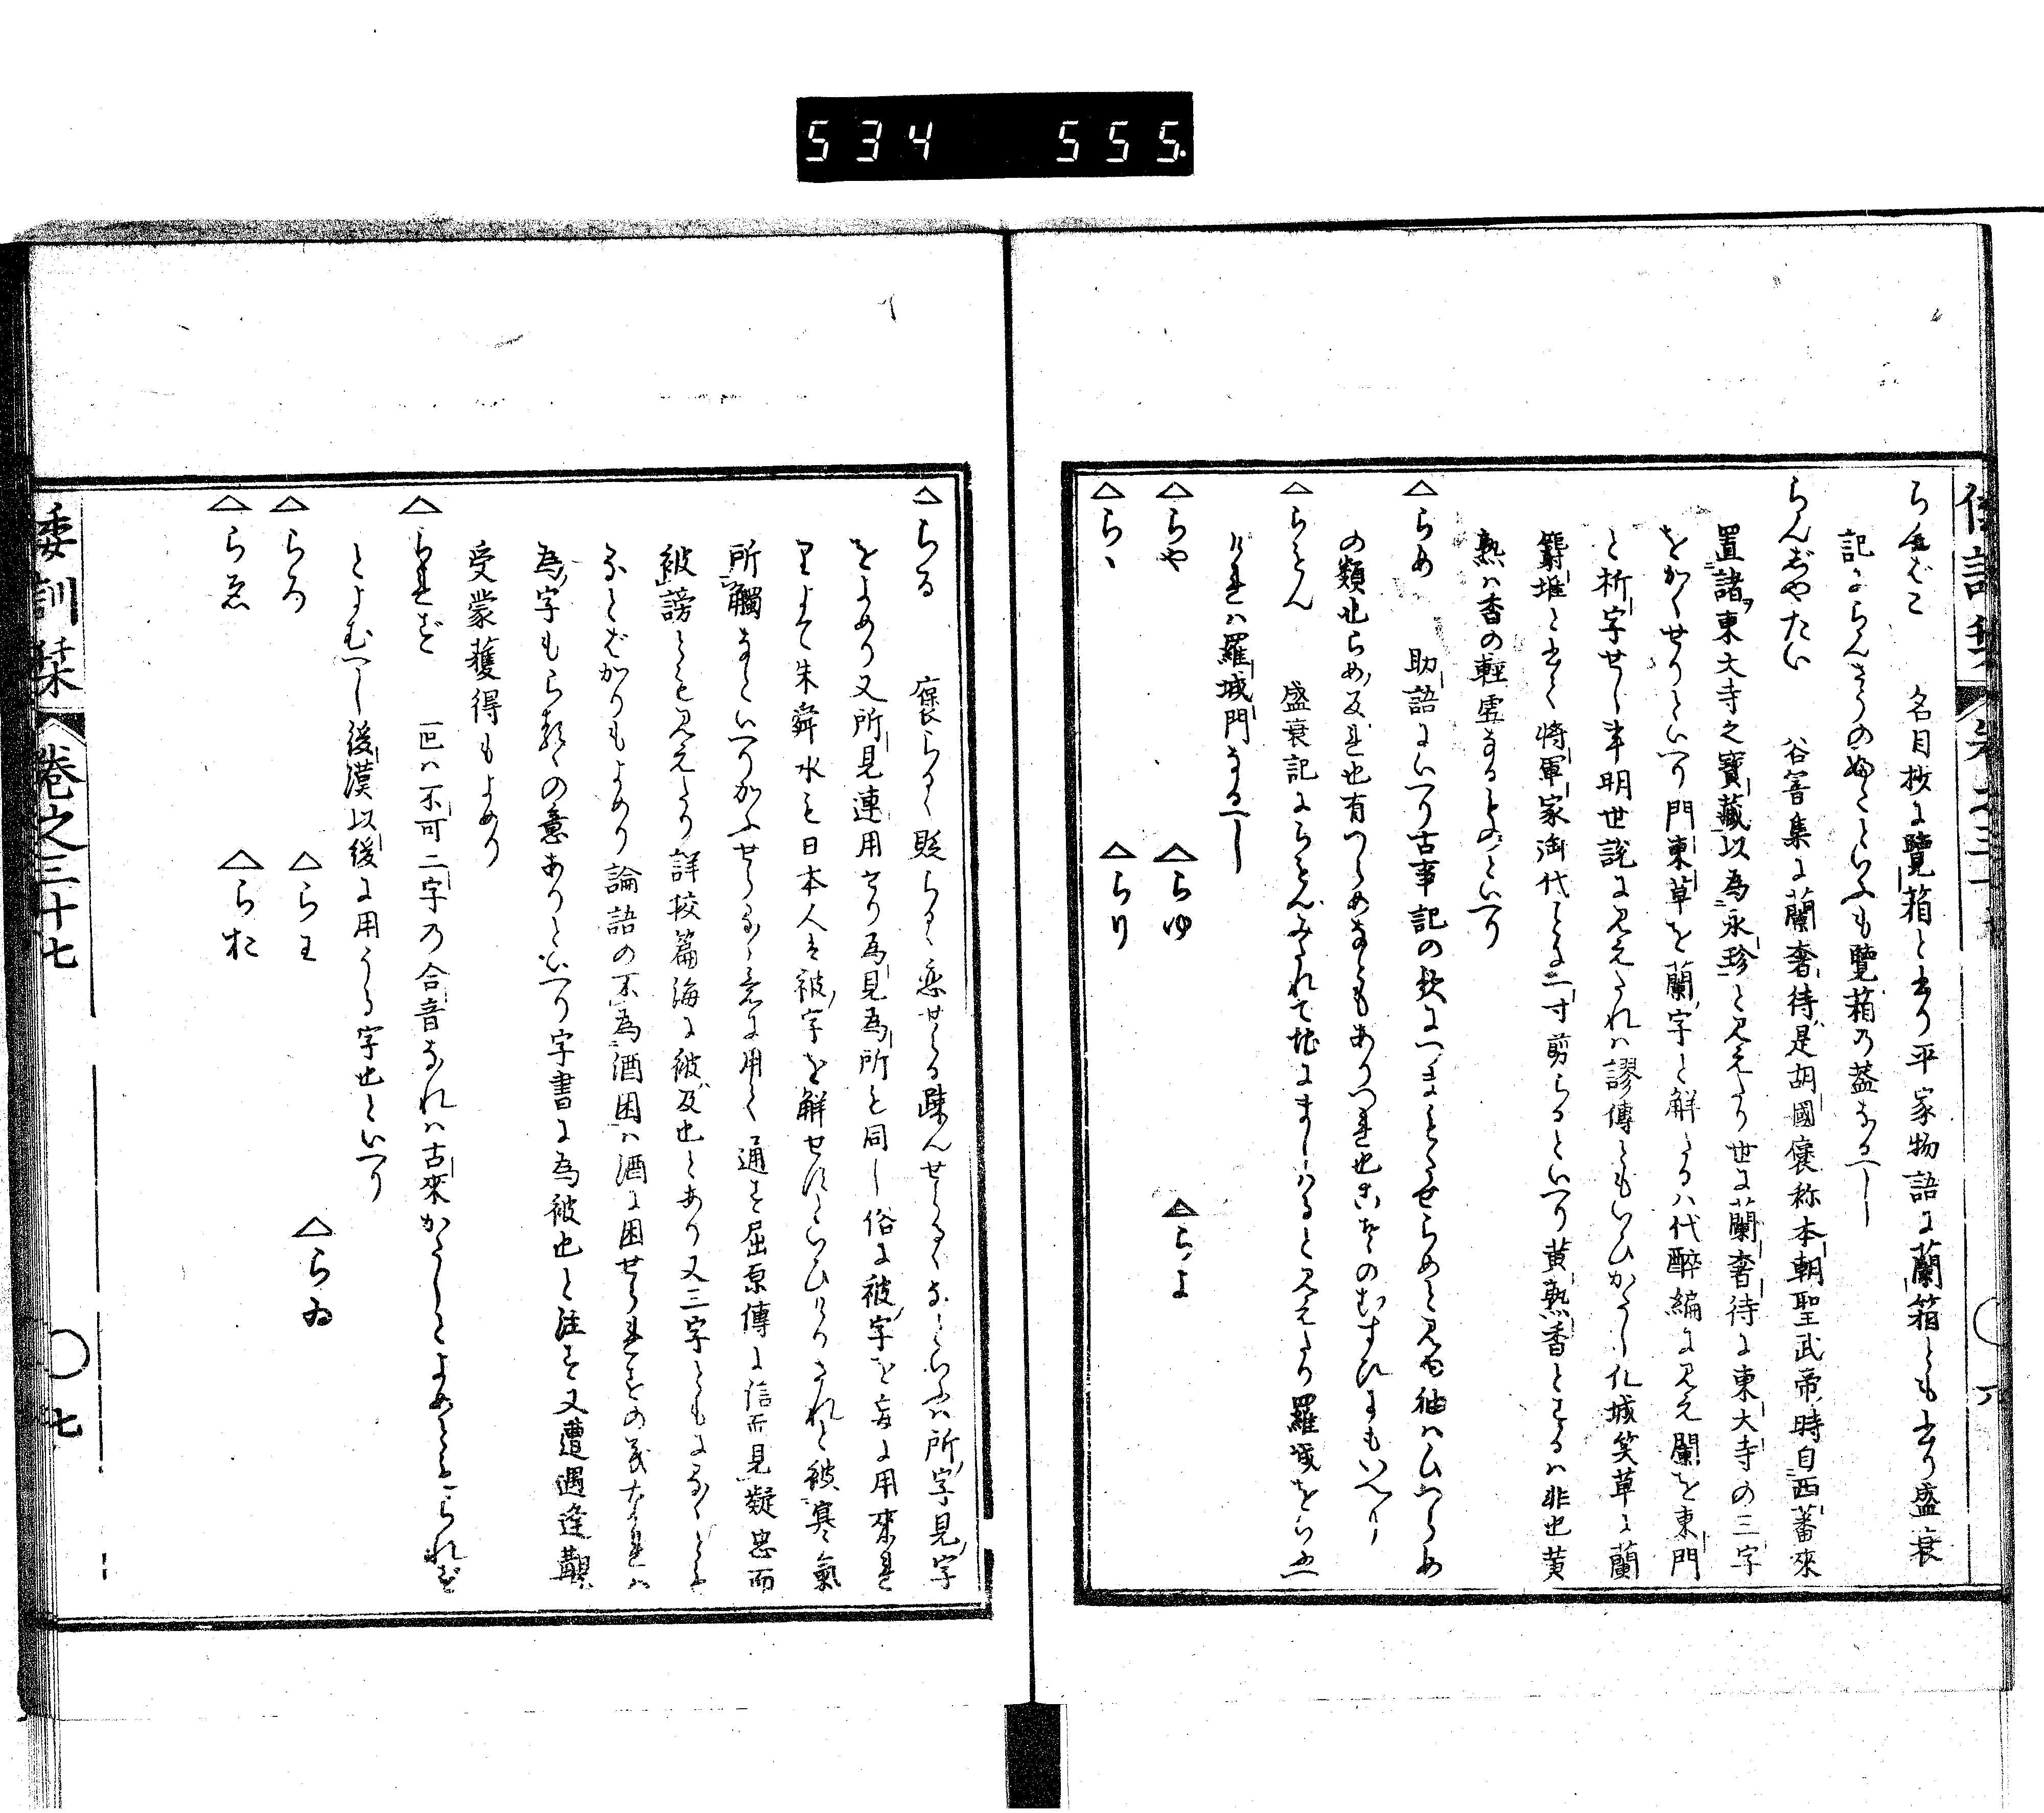 534 555
らんばこ 名目抄に覽箱と書り平家物語に蘭箱とも書り盛衰
記にらんさうのふたといふも覽箱の蓋なるべし
らんじやたい 谷響集に蘭奢待是胡國褒称本朝聖武帝時自西蕃來
置諸東大寺之寶藏以為永珍と見えたり世に蘭奢待に東大寺の三字
をかくせりといへり門東草を蘭字と解たるハ代醉編に見え闌を東門
と析字せし事明世説に見えたれハ謬傳ともいひかたし化城笑草に蘭
麝堆と書く将軍家御代とに二寸剪らるといへり黄熟香とするハ非也黄
熟ハ香の輕虚なるものといへり
△らめ 助語にいへり古事記の歌に
の類也らめ反れ也有つらめなともありつれ也こそのむすひにもいへり
△らもん 盛衰記にらもんみたれて地にましハると見えたり羅城をらせい
けれハ羅城門なるべし
△らや △らゆ △らよ
△らゝ △らり
△らる 褒らるゝ貶らるゝ恋せらる疎んせらるゝなといふハ所字見字
をよめり又所見連用せり為見為所と同し俗に被字を妄に用來れ
りよて朱舜水も日本人は被字を解せすといひけりされと被寒氣
所觸なといへりかふせらるゝ意に用て通す屈原傳に信而見疑忠而
被謗とも見えたり詳挍篇海に被及也とあり又三字ともになくと
なとばかりもよめり論語の不為酒困ハ酒に困せられその義なれハ
為字もらるゝの意ありといへり字書に為被也と注す又遭遇逢觀
受蒙獲得もよめり
△られず 一区ハ不可二字乃合音なれハ古來かたしとよめるをられず
とよむへし後漢以後に用うる字也といへり
△らろ △らわ △らゐ
△らゑ △らお
倭訓栞 卷之三十七 七